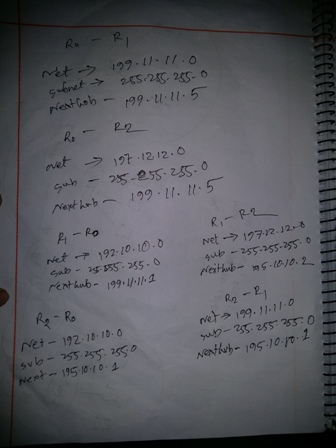 R0 - R1
Net → 199.11.11.0
subnet → 255.255.255.0
Nexthob - 199.11.11.5
R0 - R2
net → 197.12.12.0
sub - 255.255.255.0
Nexthob - 199.11.11.5
R1 - R0
Net → 192.10.10.0
sub - 255.255.255.0
Nexthob - 199.11.11.2
R1 - R2
Net → 197.12.12.0
sub - 255.255.255.0
Nexthob - 195.10.10.2
R2 - R0
Net - 192.10.10.0
sub - 255.255.255.0
Nexthob - 195.10.10.2
R2 - R1
Net → 199.11.11.0
sub - 255.255.255.0
Nexthub - 195.10.10.2